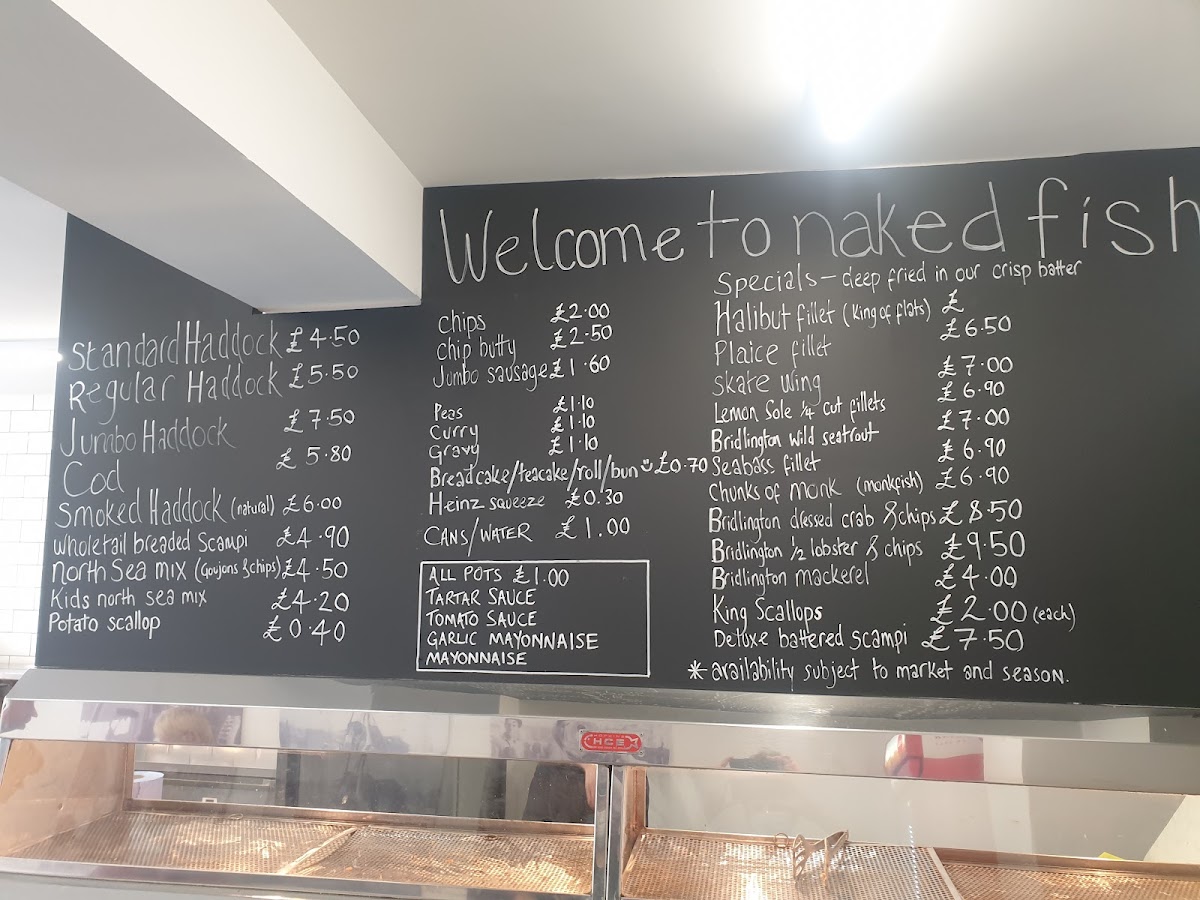 Welcome to naked fish
Standard Haddock £4.50
Regular Haddock £5.50
Jumbo Haddock £7.50
Cod £5.80
Smoked Haddock (natural) £6.00
Wholetail breaded Scampi £4.90
North Sea mix (Goujons & chips) £4.50
Kids north sea mix £4.20
Potato scallop £0.40
chips £2.00
chip butty £2.50
Jumbo sausage £1.60
Peas £1.10
Curry £1.10
Gravy £1.10
Breadcake/teacake/roll/bun £0.70
Heinz squeeze £0.30
CANS/WATER £1.00
ALL POTS £1.00
TARTAR SAUCE
TOMATO SAUCE
GARLIC MAYONNAISE
MAYONNAISE
Specials - deep fried in our crisp batter
Halibut fillet (King of flats) £
Plaice fillet £6.50
Skate wing £7.00
Lemon Sole ¼ cut fillets £6.90
Bridlington wild seatrout £7.00
Seabass fillet £6.90
Chunks of monk (monkfish) £6.90
Bridlington dressed crab & chips £8.50
Bridlington ½ lobster & chips £9.50
Bridlington mackerel £4.00
King Scallops £2.00 (each)
Deluxe battered scampi £7.50
* availability subject to market and season.
HCE